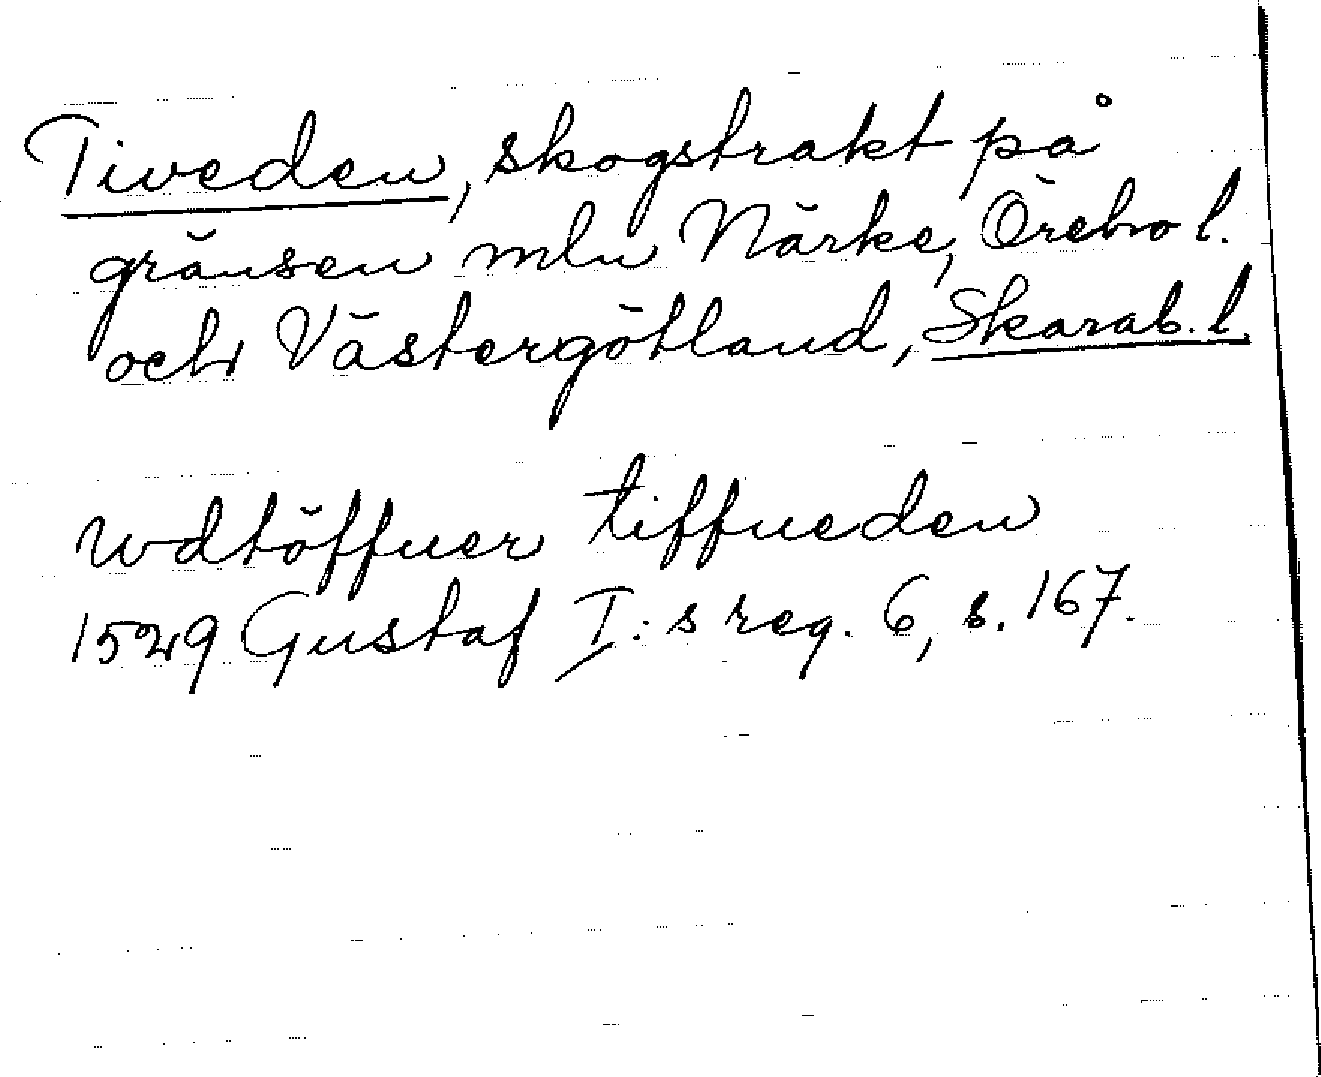 Tiveden, skogstrakt på
gränsen mln Närke, Örebro l.
och Västergötland, Skarab. l.
wdtöffuer tiffueden
1529 Gustaf I:s reg. 6, s. 167.